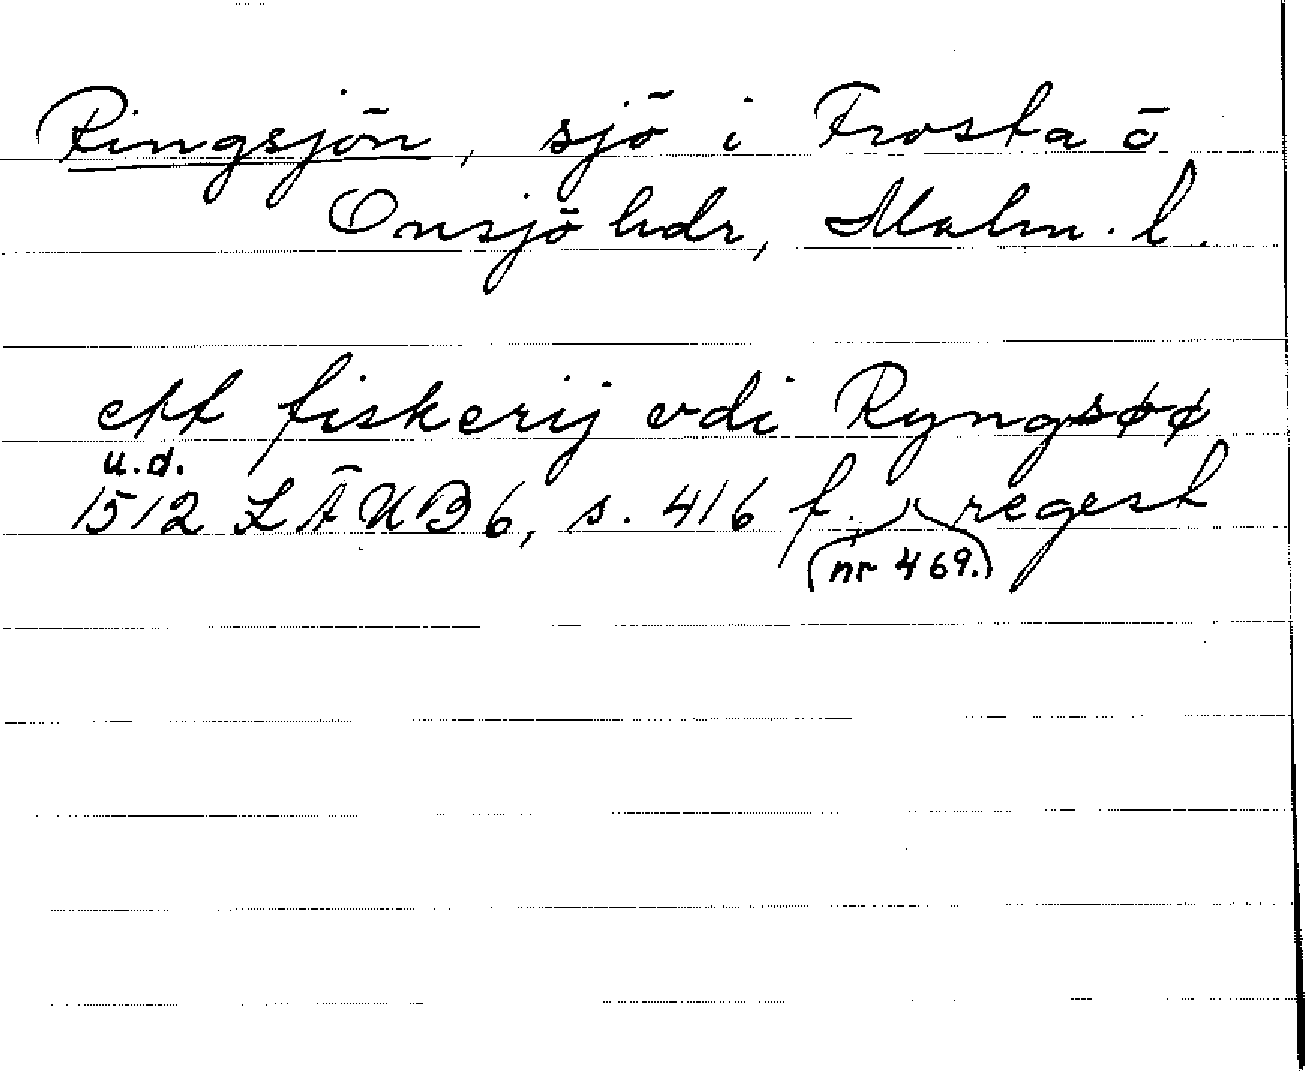 Ringsjön, sjö i Frosta o
Onsjö hdr, Malm. l.
ett fiskerij vdi Ryngsøø
u.d.
1512 LÄUB 6, s. 416 f., regest
(nr 469.)